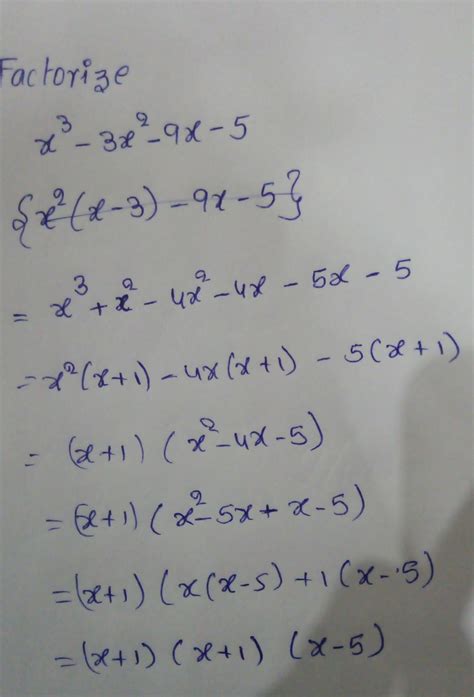 Factorize
x³ - 3x² - 9x - 5
{x²(x-3) - 9x - 5}
= x³ + x² - 4x² - 4x - 5x - 5
= x²(x+1) - 4x(x+1) - 5(x+1)
= (x+1) (x² - 4x - 5)
= (x+1) (x² - 5x + x - 5)
= (x+1) (x(x-5) + 1(x-5)
= (x+1) (x+1) (x-5)